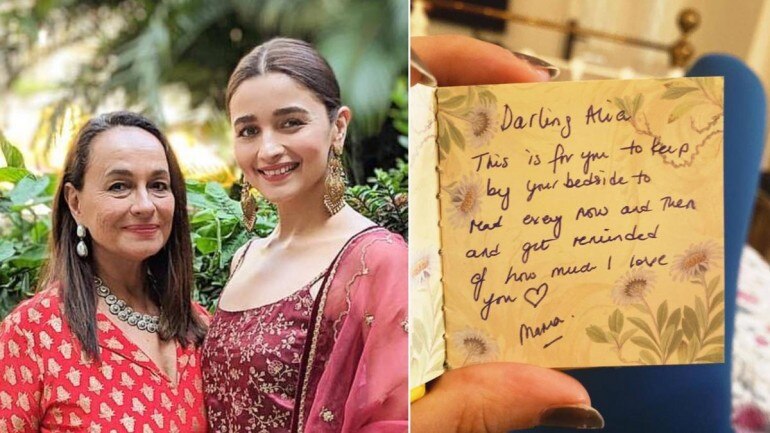 Darling Alia
This is for you to keep
by your bedside to
read every now and then
and get reminded
of how much I love
you ♡
Mama.